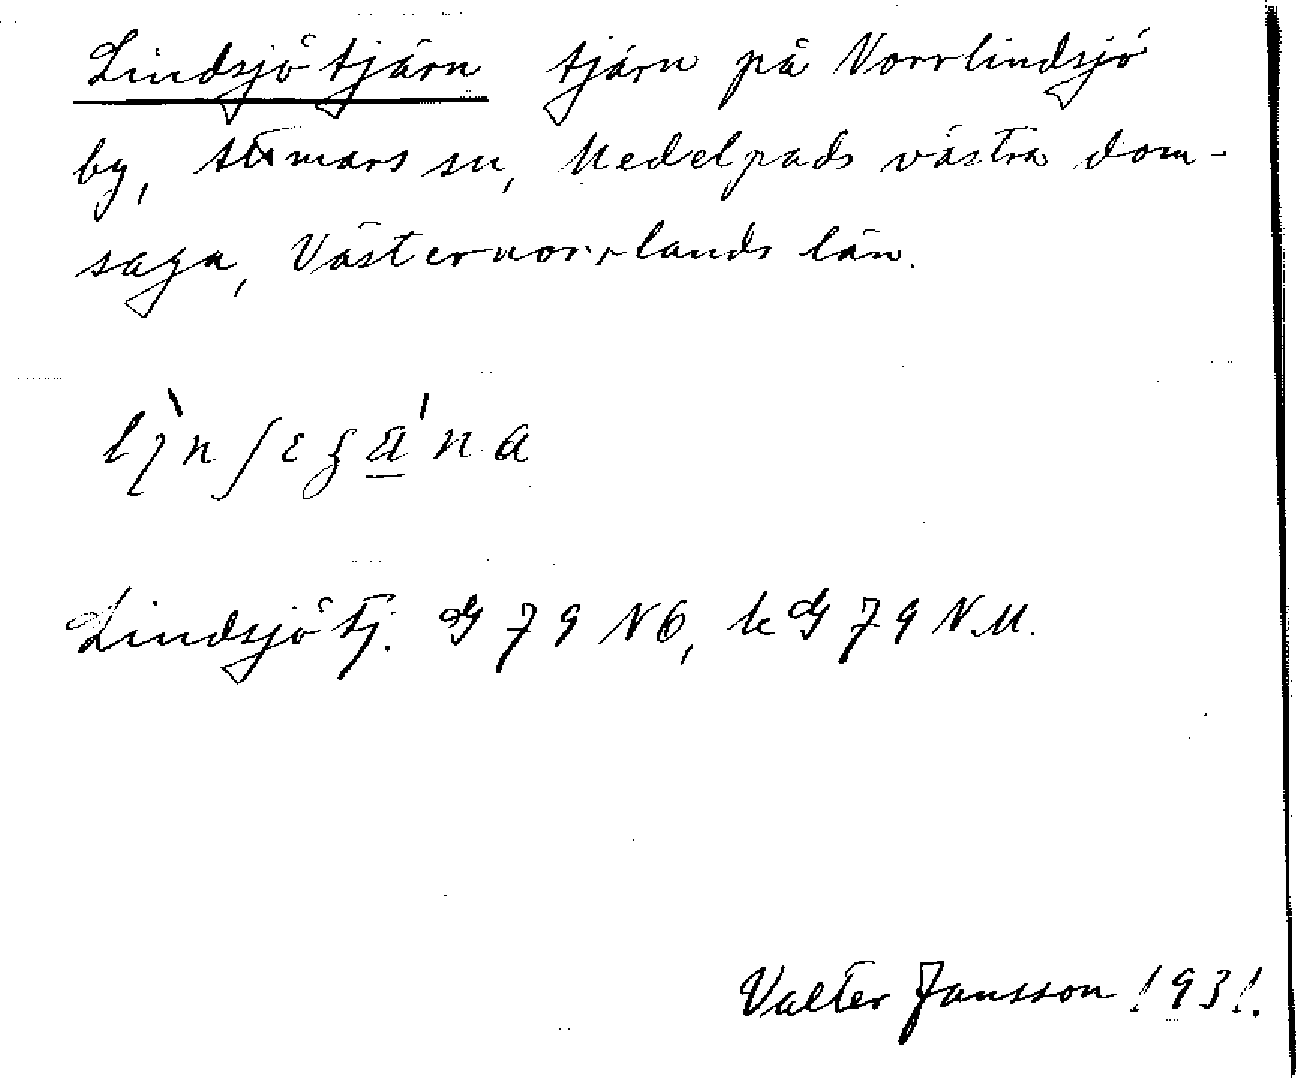 Lindsjötjärn tjärn på Norrlindsjö
by, Attmars sn, Medelpads västra dom-
saga, Västernorrlands län.
Lindsjötj. G 79 NÖ, kG 79 NM.
Valter Jansson 1931.